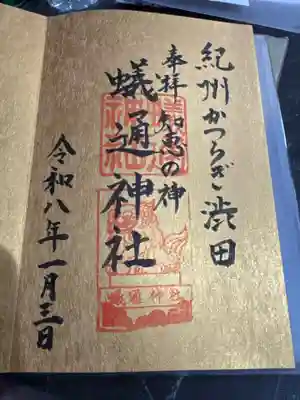 紀州かつらぎ渋田
奉拝 知恵の神
蟻通神社
令和八年一月三日
蟻通神社
蟻通神社